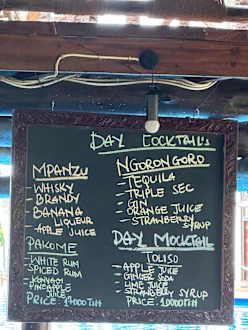 DAY COCKTAIL's
MPANZU
- WHISKY
- BRANDY
- BANANA
LIQUEUR
- APPLE JUICE
PAKOME
- WHITE RUM
- SPICED RUM
- PINEAPPLE
JUICE
PRICE:
NGORONGORO
- TEQUILA
- TRIPLE SEC
- GIN
- ORANGE JUICE
- STRAWBERRY
SYRUP
DAY MOCKTAIL
TOLISO
- APPLE JUICE
- GINGER SODA
- LIME JUICE
- STRAWBERRY SYRUP
PRICE: 10000TSH